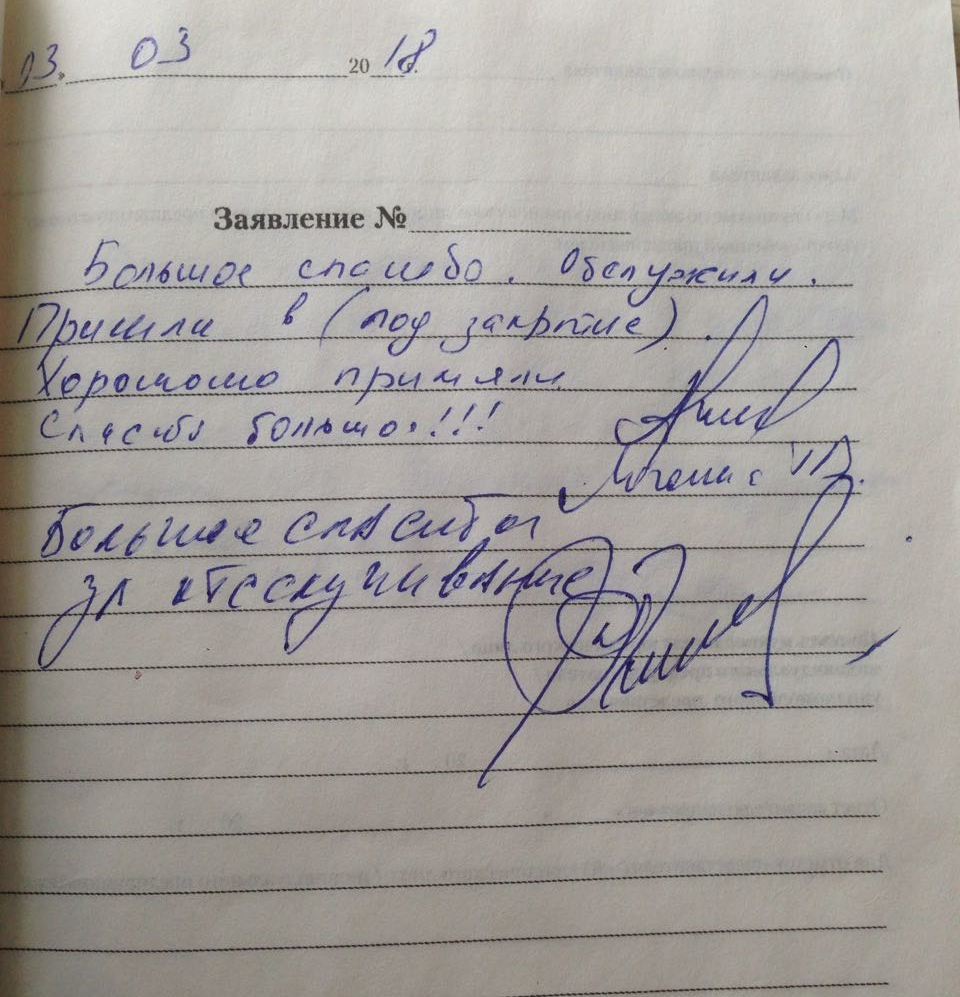 03. 03 2018 г.
Заявление №
Большое спасибо. Обслужили.
Пришли в (под закрытие).
Хорошо приняли
Спасибо большое!!!
Большое спасибо
за обслуживание